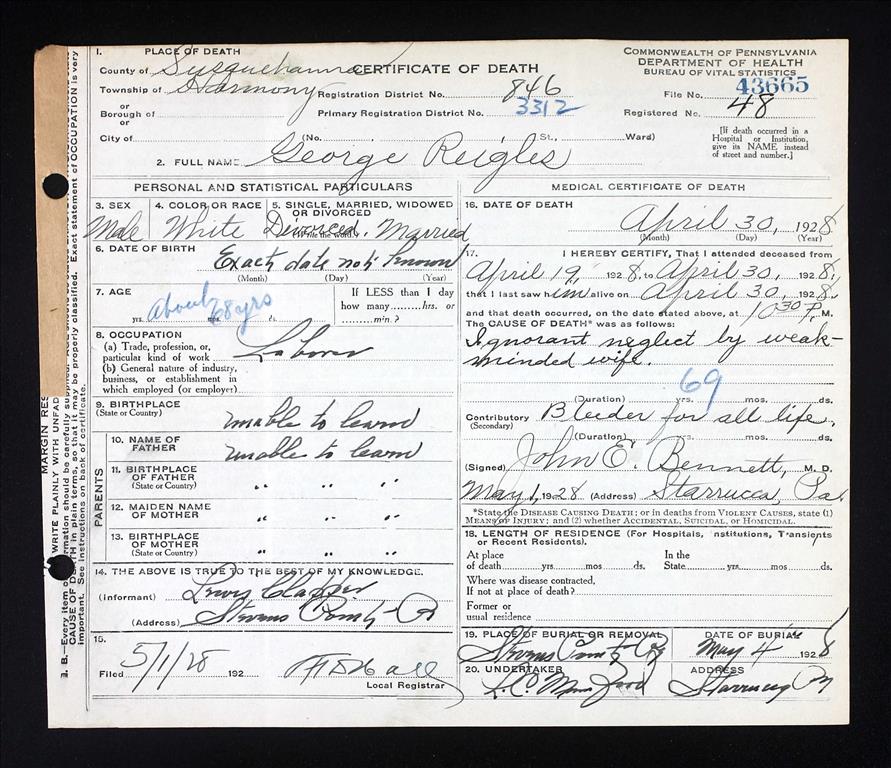 1. PLACE OF DEATH
County of Susquehanna
Township of Harmony
or
Borough of
City of
CERTIFICATE OF DEATH
Registration District No. 846
Primary Registration District No. 3312
(No. St., Ward)
COMMONWEALTH OF PENNSYLVANIA
DEPARTMENT OF HEALTH
BUREAU OF VITAL STATISTICS
File No. 43665
Registered No. 48
[If death occurred in a
Hospital or Institution,
give its NAME instead
of street and number.]
2. FULL NAME George Reigles
PERSONAL AND STATISTICAL PARTICULARS
3. SEX
Male
4. COLOR OR RACE
White
5. SINGLE, MARRIED, WIDOWED
OR DIVORCED
(Write the word)
Divorced. Married
6. DATE OF BIRTH
Exact date not known
(Month) (Day) (Year)
7. AGE
About 68 yrs
yrs. mos. ds.
If LESS than 1 day
how many hrs. or
min.?
8. OCCUPATION
(a) Trade, profession, or,
particular kind of work Laborer
(b) General nature of industry,
business, or establishment in
which employed (or employer)
9. BIRTHPLACE
(State or Country)
unable to learn
PARENTS
10. NAME OF
FATHER
unable to learn
11. BIRTHPLACE
OF FATHER
(State or Country)
" " "
12. MAIDEN NAME
OF MOTHER
" " "
13. BIRTHPLACE
OF MOTHER
(State or Country)
" " "
14. THE ABOVE IS TRUE TO THE BEST OF MY KNOWLEDGE.
(Informant) Lewis
(Address) Stevens Point Pa
15.
Filed 5/1/28 192
Local Registrar
MEDICAL CERTIFICATE OF DEATH
16. DATE OF DEATH
April 30, 1928
(Month) (Day) (Year)
17. I HEREBY CERTIFY, That I attended deceased from
April 19, 1928, to April 30, 1928,
that I last saw him alive on April 30, 1928,
and that death occurred, on the date stated above, at 10 30 P. M.
The CAUSE OF DEATH* was as follows:
Ignorant neglect by weak-
minded wife.
69
(Duration) yrs. mos. ds.
Contributory Bleeder for all life.
(Secondary)
(Duration) yrs. mos. ds.
(Signed) John E. Bennett, M. D.
May 1, 1928 (Address) Starrucca, Pa.
*State the DISEASE CAUSING DEATH; or in deaths from VIOLENT CAUSES, state (1)
MEANS OF INJURY; and (2) whether ACCIDENTAL, SUICIDAL, or HOMICIDAL.
18. LENGTH OF RESIDENCE (For Hospitals, Institutions, Transients
or Recent Residents).
At place
of death yrs. mos. ds.
In the
State yrs. mos. ds.
Where was disease contracted,
If not at place of death?
Former or
usual residence
19. PLACE OF BURIAL OR REMOVAL
Stevens Point Pa
DATE OF BURIAL
May 4 1928
20. UNDERTAKER
ADDRESS
Starrucca Pa
MARGIN RES
WRITE PLAINLY WITH UNFAD
CAUSE OF DEATH in plain terms, so that it may be properly classified. Exact statement of OCCUPATION is very
important. See instructions on back of certificate.